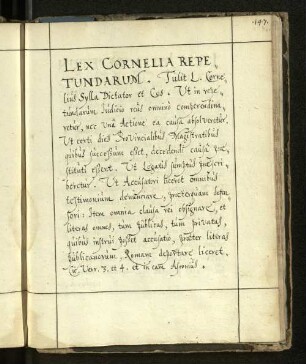 147.
LEX CORNELIA REPE
TUNDARUM. Tulit L. Corne
lius Sylla Dictator et Cos. Ut in repe
tundarum Judicio reus omnino comperendina
retur, nec una Actione ea causa absolveretur.
Ut certi dies Provincialibus Magistratibus
quibus successum esset, decedendi causa prae
stituti essent. Ut Legatis sumptus praescri
beretur. Ut Accusatori liceret omnibus
testimonium denunciare, praeterquam defen
sori: Item omnia clausa rei obsignare, et
literas omnes, tum publicas, tum privatas,
quibus instrui posset accusatio, praeter literas
publicanorum, Romam deportare liceret.
Cic. Verr. 3. et 4. et in eam Asconius.